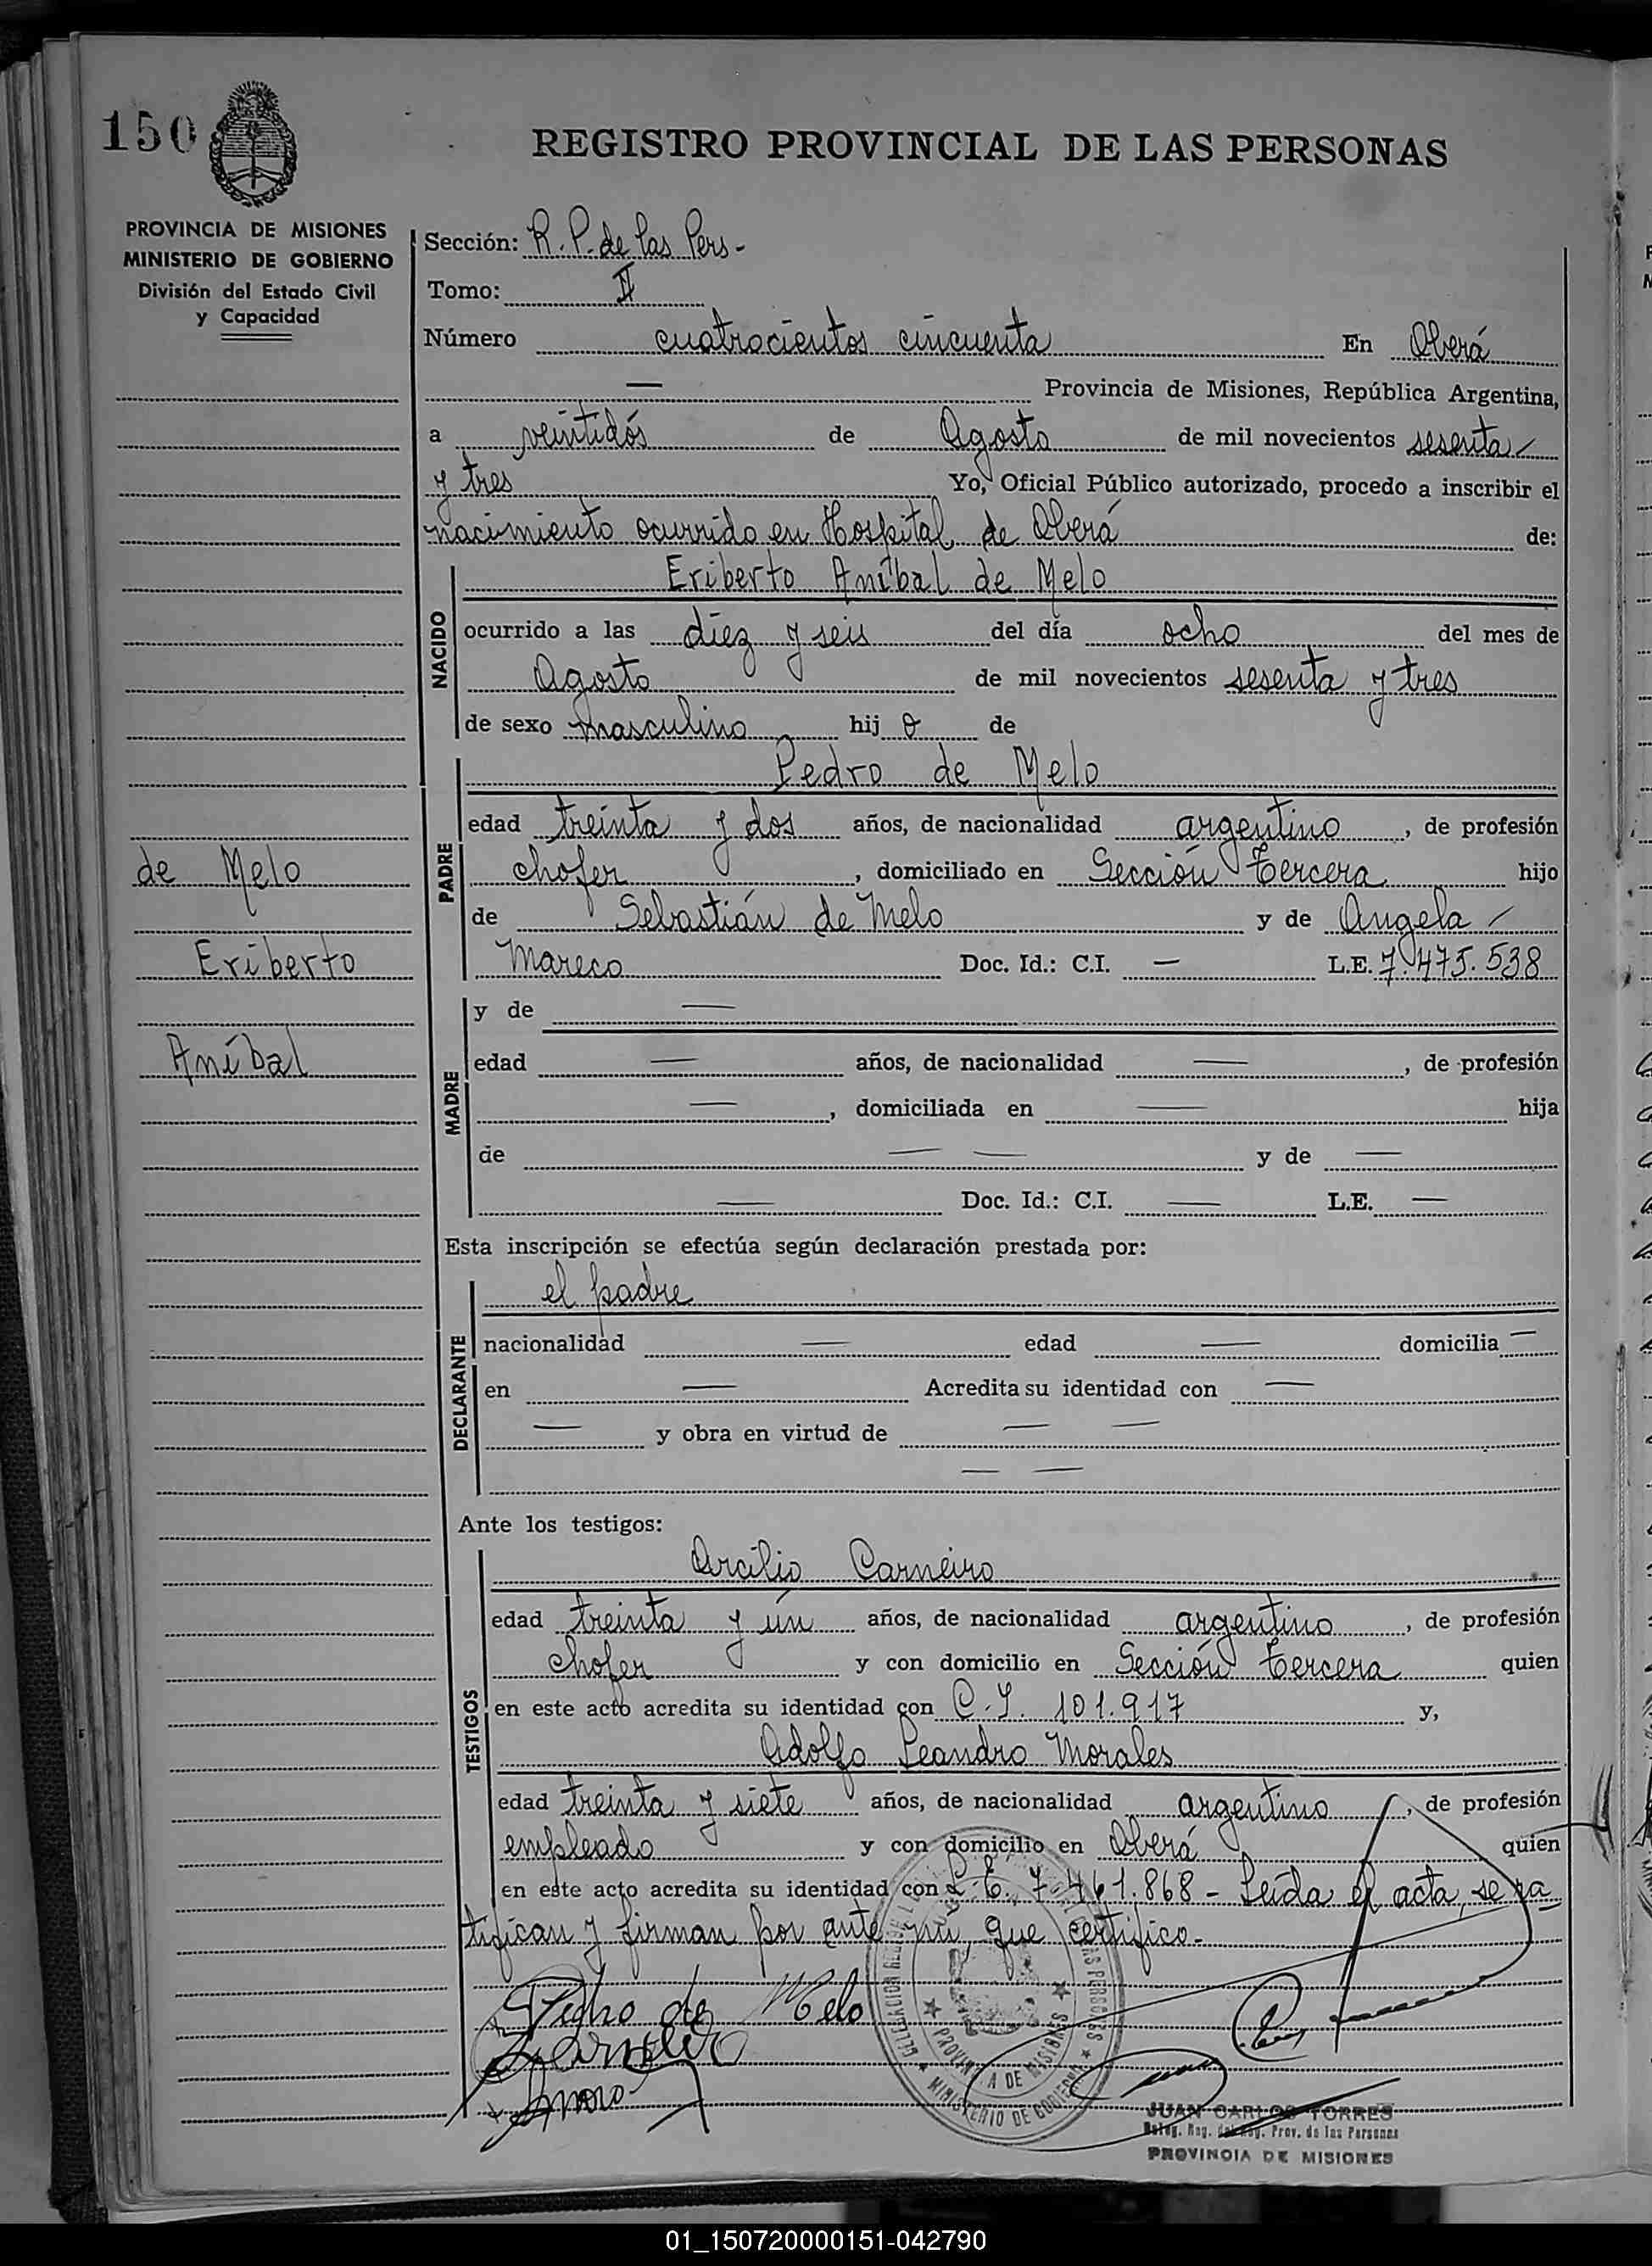 150
REGISTRO PROVINCIAL DE LAS PERSONAS
PROVINCIA DE MISIONES
MINISTERIO DE GOBIERNO
División del Estado Civil
y Capacidad
Sección: R. P. de las Pers-
Tomo: II
Número cuatrocientos cincuenta En Oberá
— Provincia de Misiones, República Argentina,
a veintidós de Agosto de mil novecientos sesenta
y tres Yo, Oficial Público autorizado, procedo a inscribir el
nacimiento ocurrido en Hospital de Oberá de:
NACIDO
Eriberto Aníbal de Melo
ocurrido a las diez y seis del día ocho del mes de
Agosto de mil novecientos sesenta y tres
de sexo masculino hij o de
PADRE
Pedro de Melo
edad treinta y dos años, de nacionalidad argentino, de profesión
chofer, domiciliado en Sección Tercera hijo
de Sebastián de Melo y de Angela
Mareco Doc. Id.: C.I. — L.E. 7.475.538
de Melo
Eriberto
Aníbal
MADRE
y de —
edad — años, de nacionalidad —, de profesión
—, domiciliada en — hija
de — — y de —
— Doc. Id.: C.I. — L.E. —
Esta inscripción se efectúa según declaración prestada por:
DECLARANTE
el padre
nacionalidad — edad — domicilia —
en — Acredita su identidad con —
— y obra en virtud de — —
— —
Ante los testigos:
TESTIGOS
Arcilio Carneiro
edad treinta y ún años, de nacionalidad argentino, de profesión
chofer y con domicilio en Sección Tercera quien
en este acto acredita su identidad con C.I. 101.917 y,
Adolfo Leandro Morales
edad treinta y siete años, de nacionalidad argentino, de profesión
empleado y con domicilio en Oberá quien
en este acto acredita su identidad con L.E. 7.461.868 - Leída el acta, se ra
tifican y firman por ante mí, que certifico.-
Pedro de Melo
PROVINCIA DE MISIONES
MINISTERIO DE GOBIERNO
JUAN CARLOS TORRES
Prov. de las Personas
PROVINCIA DE MISIONES
01_150720000151-042790